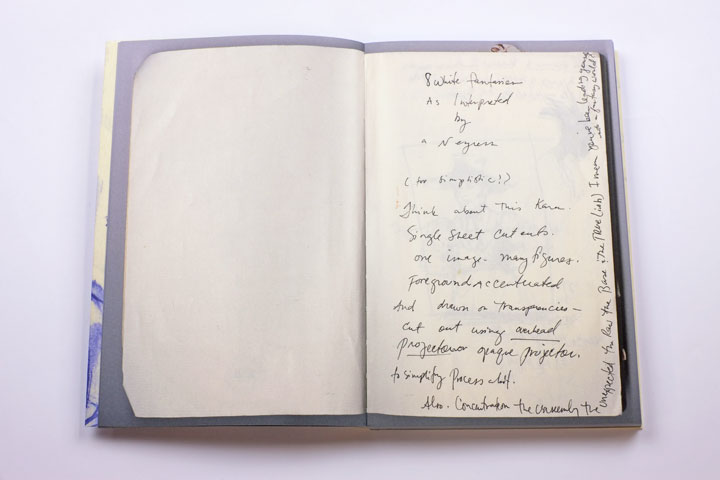 8 White fantasies
As Interpreted
by
a Negress
(too simplistic!?)
Think about this Kara.
Single sheet cut outs.
one image. many figures.
Foreground accentuated
And drawn on transparencies—
cut out using overhead
projector or opaque projector.
to simplify Process a bit.
Also. Concentrate on the unseemly the
unexpected the Raw the Base the True (ish) I mean you've been